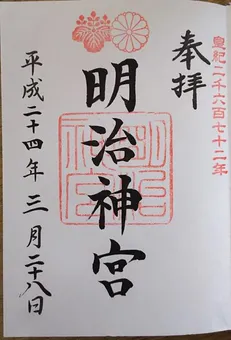 皇紀二千六百七十二年
奉拝
明治神宮
平成二十四年三月二十八日